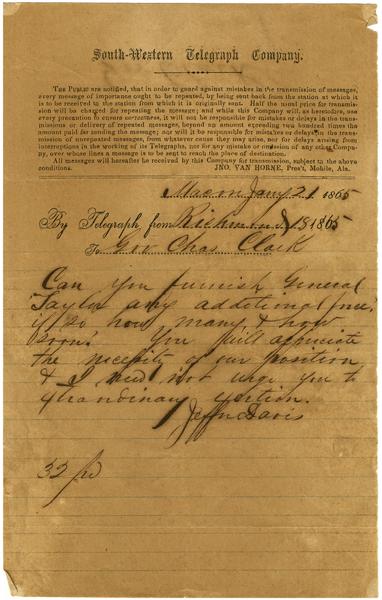 South-Western Telegraph Company.
THE PUBLIC are notified, that in order to guard against mistakes in the transmission of messages,
every message of importance ought to be repeated, by being sent back from the station at which it
is to be received to the station from which it is originally sent. Half the usual price for transmis-
sion will be charged for repeating the message; and while this Company will, as heretofore, use
every precaution to ensure correctness, it will not be responsible for mistakes or delays in the trans-
missions or delivery of repeated messages, beyond an amount exceeding two hundred times the
amount paid for sending the message; nor will it be responsible for mistakes or delays in the trans-
mission of unrepeated messages, from whatever cause they may arise, nor for delays arising from
interruptions in the working of its Telegraphs, nor for any mistake or omission of any other Compa-
ny, over whose lines a message is to be sent to reach the place of destination.
All messages will hereafter be received by this Company for transmission, subject to the above
conditions.
JNO. VAN HORNE, Pres't, Mobile, Ala.
Macon Jany 21 1865
By Telegraph from Richmond 18 1865
To Gov Chas Clark
Can you furnish General
Taylor any additional force
if so how many & how
soon. You will appreciate
the necessity of our position
& I need not urge you to
extraordinary exertion.
Jeffn Davis
32 pd